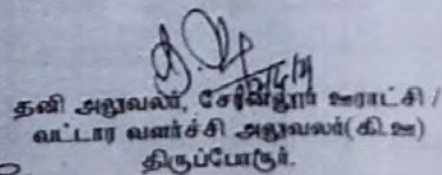 தனி அலுவலர், ஊராட்சி /
வட்டார வளர்ச்சி அலுவலர்(கி.ஊ)
திருப்போரூர்.